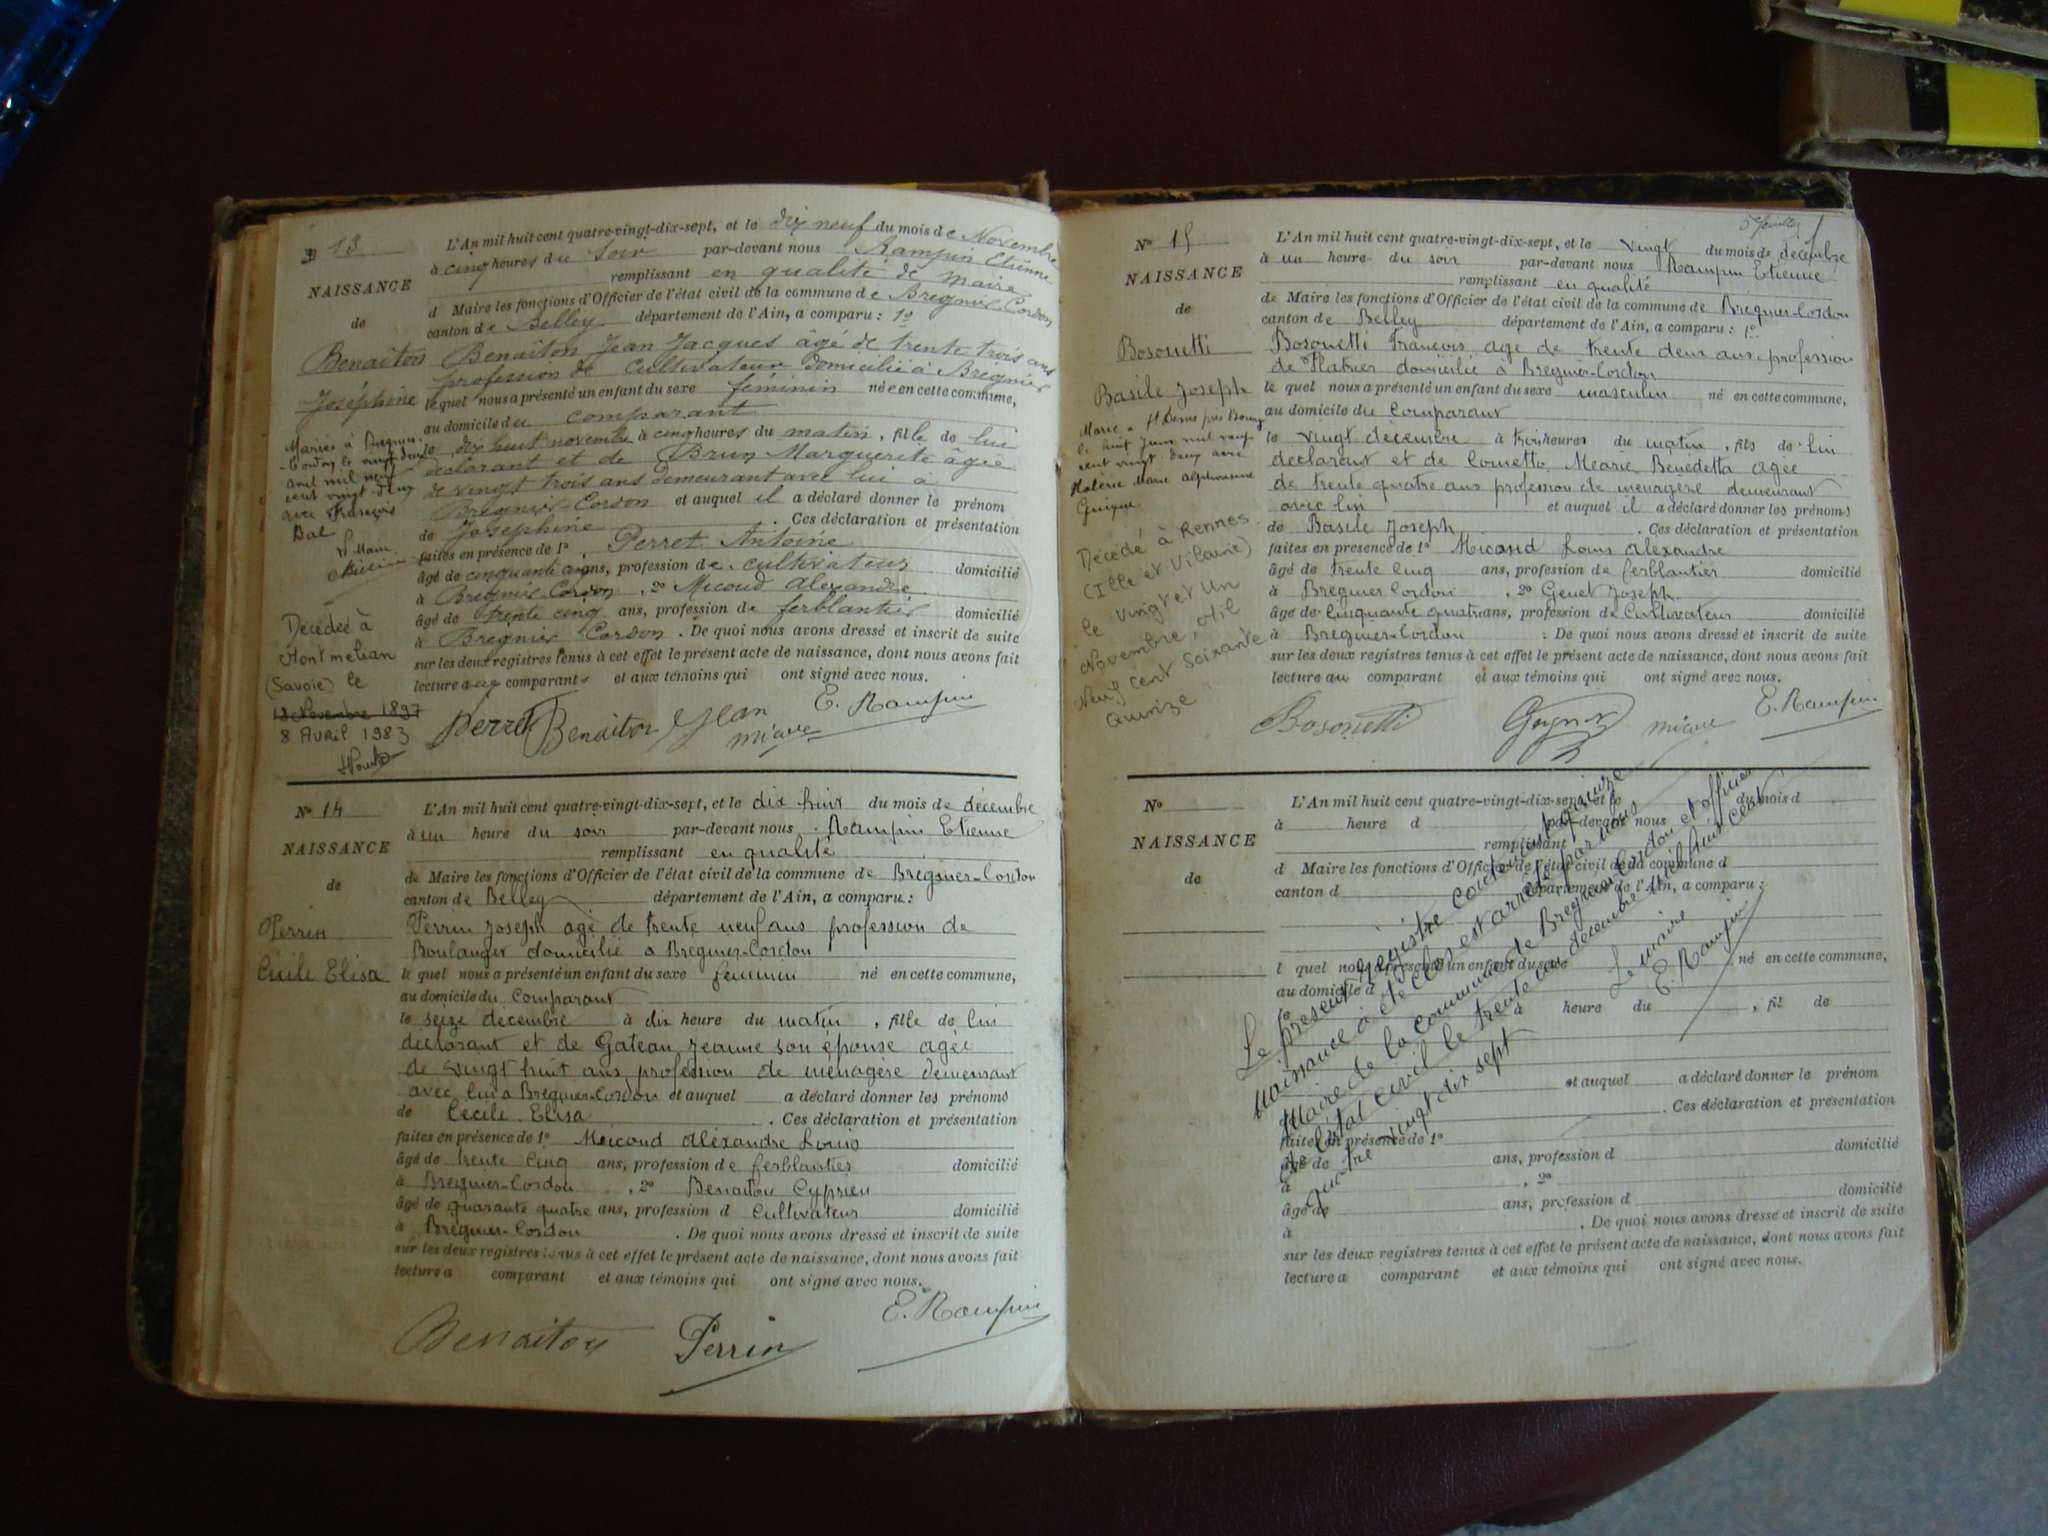 N° 13
NAISSANCE
de
Benaiton
Joséphine
Mariée à Brégnier-
-Cordon le vingt deux
avril mil neuf
cent vingt-deux
avec François
Bal
Le Maire
Décédée à
Montmelian
(Savoie) le
18 Novembre 1897
8 Avril 1983
L'An mil huit cent quatre-vingt-dix-sept, et le dix neuf du mois de Novembre
à cinq heures du Soir par-devant nous Rampin Etienne
remplissant en qualité de maire
d Maire les fonctions d'Officier de l'état civil de la commune de Bregnier Cordon
canton de Belley département de l'Ain, a comparu : 1°
Benaiton Jean Jacques âgé de trente trois ans
profession de Cultivateur domicilié à Brégnier
le quel nous a présenté un enfant du sexe féminin née en cette commune,
au domicile du comparant
le dix huit novembre à cinq heures du matin, fille de lui
declarant et de Brun Marguerite âgée
de vingt trois ans demeurant avec lui à
Bregnier-Cordon et auquel il a déclaré donner le prénom
de Josephine . Ces déclaration et présentation
faites en présence de 1° Perret Antoine
âgé de cinquante ans, profession de cultivateur domicilié
à Bregnier Cordon , 2° Micoud Alexandre
âgé de trente cinq ans, profession de ferblantier domicilié
à Bregnier Cordon . De quoi nous avons dressé et inscrit de suite
sur les deux registres tenus à cet effet le présent acte de naissance, dont nous avons fait
lecture aux comparants et aux témoins qui ont signé avec nous.
Perret Benaiton Jean E. Rampin
N° 14
NAISSANCE
de
Perrin
Cécile Elisa
L'An mil huit cent quatre-vingt-dix-sept, et le dix huit du mois de décembre
à un heure du soir par-devant nous Rampin Etienne
remplissant en qualité
de Maire les fonctions d'Officier de l'état civil de la commune de Bregnier-Cordon
canton de Belley département de l'Ain, a comparu :
Perrin Joseph agé de trente neuf ans profession de
Boulanger domicilié a Bregnier-Cordon
le quel nous a présenté un enfant du sexe feminin né en cette commune,
au domicile du comparant
le seize decembre à dix heure du matin , fille de lui
déclarant et de Gateau Jeanne son épouse agée
de vingt huit ans profession de ménagère demeurant
avec lui a Bregnier-Cordon et auquel a déclaré donner les prénoms
de Cecile Elisa . Ces déclaration et présentation
faites en présence de 1° Micoud Alexandre Louis
âgé de trente cinq ans, profession de ferblantier domicilié
à Bregnier-Cordon , 2° Benaiton Cyprien
âgé de quarante quatre ans, profession d Cultivateur domicilié
à Bregnier-Cordon . De quoi nous avons dressé et inscrit de suite
sur les deux registres tenus à cet effet le présent acte de naissance, dont nous avons fait
lecture a comparant et aux témoins qui ont signé avec nous.
Benaiton Perrin E. Rampin
N° 15
NAISSANCE
de
Bosonetti
Basile Joseph
Marié a St Denis près Bourg
le huit Juin mil neuf
cent vingt-deux avec
Marie Alphonsine
Décédé à Rennes
(Ille et Vilaine)
le Vingt et Un
Novembre, Mil
Neuf Cent Soixante
Quinze
L'An mil huit cent quatre-vingt-dix-sept, et le vingt du mois de décembre
à un heure du soir par-devant nous Rampin Etienne
remplissant en qualité
de Maire les fonctions d'Officier de l'état civil de la commune de Bregnier-Cordon
canton de Belley département de l'Ain, a comparu : 1°
Bosonetti Francois age de trente deux ans, profession
de Platrier domicilié à Bregnier-Cordon
le quel nous a présenté un enfant du sexe masculin né en cette commune,
au domicile du comparant
le vingt decembre à trois heures du matin , fils de lui
declarant et de Cometto Marie Benedetta agée
de trente quatre ans profession de menagère demeurant
avec lui et auquel il a déclaré donner les prénoms
de Basile Joseph . Ces déclaration et présentation
faites en présence de 1° Micoud Louis Alexandre
âgé de trente cinq ans, profession de ferblantier domicilié
à Bregnier Cordon , 2° Genet Joseph
âgé de cinquante quatre ans, profession de Cultivateur domicilié
à Bregnier-Cordon . De quoi nous avons dressé et inscrit de suite
sur les deux registres tenus à cet effet le présent acte de naissance, dont nous avons fait
lecture au comparant et aux témoins qui ont signé avec nous.
Bosonetti E. Rampin
N°
NAISSANCE
de
L'An mil huit cent quatre-vingt-dix-sept, et le du mois d
à heure d par-devant nous
remplissant
d Maire les fonctions d'Officier de l'état civil de la commune d
canton d département de l'Ain, a comparu :
l quel nous a présenté un enfant du sexe né en cette commune,
au domicile d
le à heure du , fil de
et auquel a déclaré donner le prénom
. Ces déclaration et présentation
faites en présence de 1° domicilié
âgé de ans, profession d
à , 2°
âgé de ans, profession d domicilié
à . De quoi nous avons dressé et inscrit de suite
sur les deux registres tenus à cet effet le présent acte de naissance, dont nous avons fait
lecture a comparant et aux témoins qui ont signé avec nous.
Le présent registre contenant quinze
naissances a été clos et arrêté par nous
Maire de la commune de Bregnier-Cordon et officier
de l'état civil le trente un décembre mil huit cent
quatre vingt dix sept
Le maire
E. Rampin